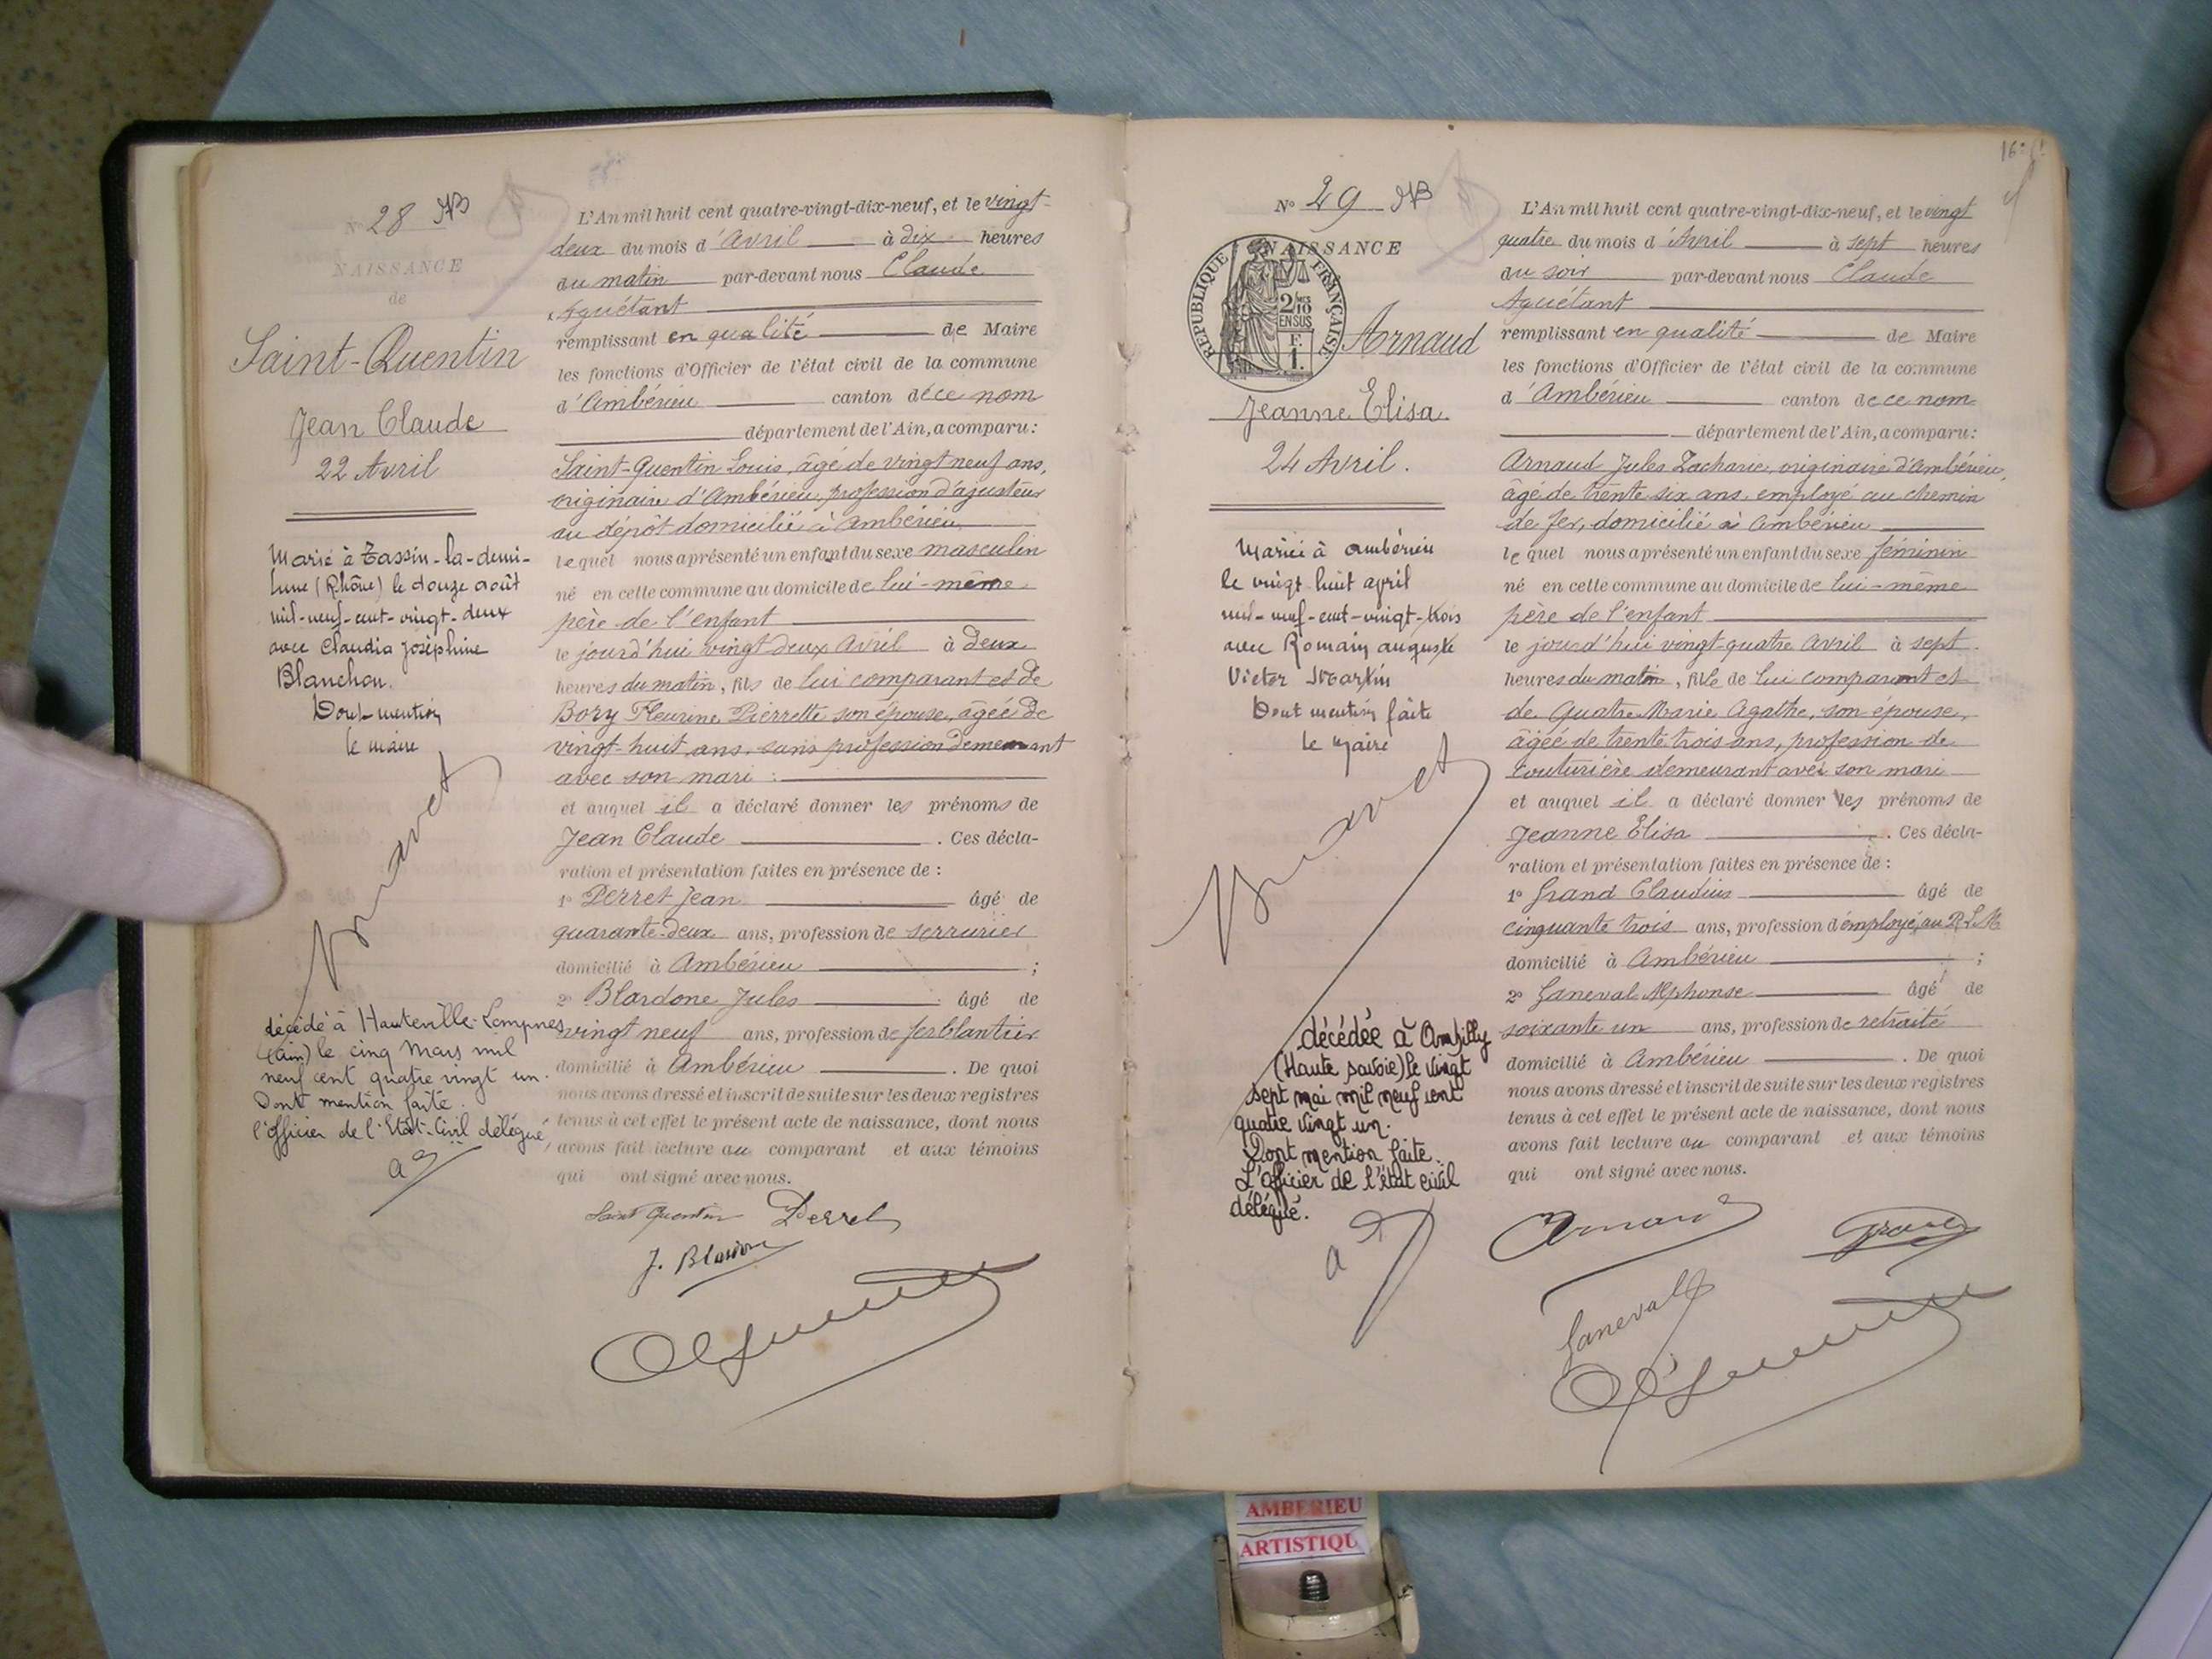 N° 28
NAISSANCE
de
Saint-Quentin
Jean Claude
22 Avril
Marié à Tassin-la-demi-
lune (Rhône) le douze août
mil-neuf-cent-vingt-deux
avec Claudia Joséphine
Blanchon.
Dont mention
le maire
décédé à Hauteville-Lompnes
(Ain) le cinq Mars mil
neuf cent quatre vingt un.
Dont mention faite.
l'officier de l'Etat-Civil délégué,
L'An mil huit cent quatre-vingt-dix-neuf, et le vingt-
deux du mois d'Avril à dix heures
du matin par-devant nous Claude
Aguétant
remplissant en qualité de Maire
les fonctions d'Officier de l'état civil de la commune
d'Ambérieu canton de ce nom
département de l'Ain, a comparu:
Saint-Quentin Louis, âgé de vingt neuf ans,
originaire d'Ambérieu, profession d'ajusteur
au dépôt domicilié à Ambérieu
lequel nous a présenté un enfant du sexe masculin
né en cette commune au domicile de lui-même
père de l'enfant
le jourd'hui vingt deux Avril à deux
heures du matin, fils de lui comparant et de
Bory Fleurine Pierrette son épouse, âgée de
vingt-huit ans, sans profession demeurant
avec son mari :
et auquel il a déclaré donner les prénoms de
Jean Claude . Ces décla-
ration et présentation faites en présence de :
1° Perret Jean âgé de
quarante-deux ans, profession de serrurier
domicilié à Ambérieu ;
2° Blardone Jules âgé de
vingt neuf ans, profession de ferblantier
domicilié à Ambérieu . De quoi
nous avons dressé et inscrit de suite sur les deux registres
tenus à cet effet le présent acte de naissance, dont nous
avons fait lecture au comparant et aux témoins
qui ont signé avec nous.
Saint Quentin Perret
J. Blardone
16
N° 29
NAISSANCE
REPUBLIQUE FRANÇAISE
2/10
EN SUS
F.
1.
Arnaud
Jeanne Elisa
24 Avril.
Mariée à Ambérieu
le vingt huit april
mil-neuf-cent-vingt-trois
avec Romain auguste
Victor Martin
Dont mention faite
le Maire
décédée à Ambilly
(Haute savoie) le vingt
sept mai mil neuf cent
quatre vingt un.
Dont mention faite.
L'officier de l'état civil
délégué.
L'An mil huit cent quatre-vingt-dix-neuf, et le vingt
quatre du mois d'Avril à sept heures
du soir par-devant nous Claude
Aguétant
remplissant en qualité de Maire
les fonctions d'Officier de l'état civil de la commune
d'Ambérieu canton de ce nom
département de l'Ain, a comparu:
Arnaud Jules Zacharie, originaire d'Ambérieu,
âgé de trente six ans, employé au chemin
de fer, domicilié à Ambérieu
lequel nous a présenté un enfant du sexe féminin
né en cette commune au domicile de lui-même
père de l'enfant
le jourd'hui vingt-quatre Avril à sept
heures du matin, fille de lui comparant et
de Quatre Marie Agathe, son épouse,
âgée de trente trois ans, profession de
couturière demeurant avec son mari
et auquel il a déclaré donner les prénoms de
Jeanne Elisa . Ces décla-
ration et présentation faites en présence de :
1° Grand Claudius âgé de
cinquante trois ans, profession d'employé au P.L.M
domicilié à Ambérieu ;
2° Ganeval Alphonse âgé de
soixante un ans, profession de retraité
domicilié à Ambérieu . De quoi
nous avons dressé et inscrit de suite sur les deux registres
tenus à cet effet le présent acte de naissance, dont nous
avons fait lecture au comparant et aux témoins
qui ont signé avec nous.
Arnaud Grand
Ganeval
AMBERIEU
ARTISTIQU